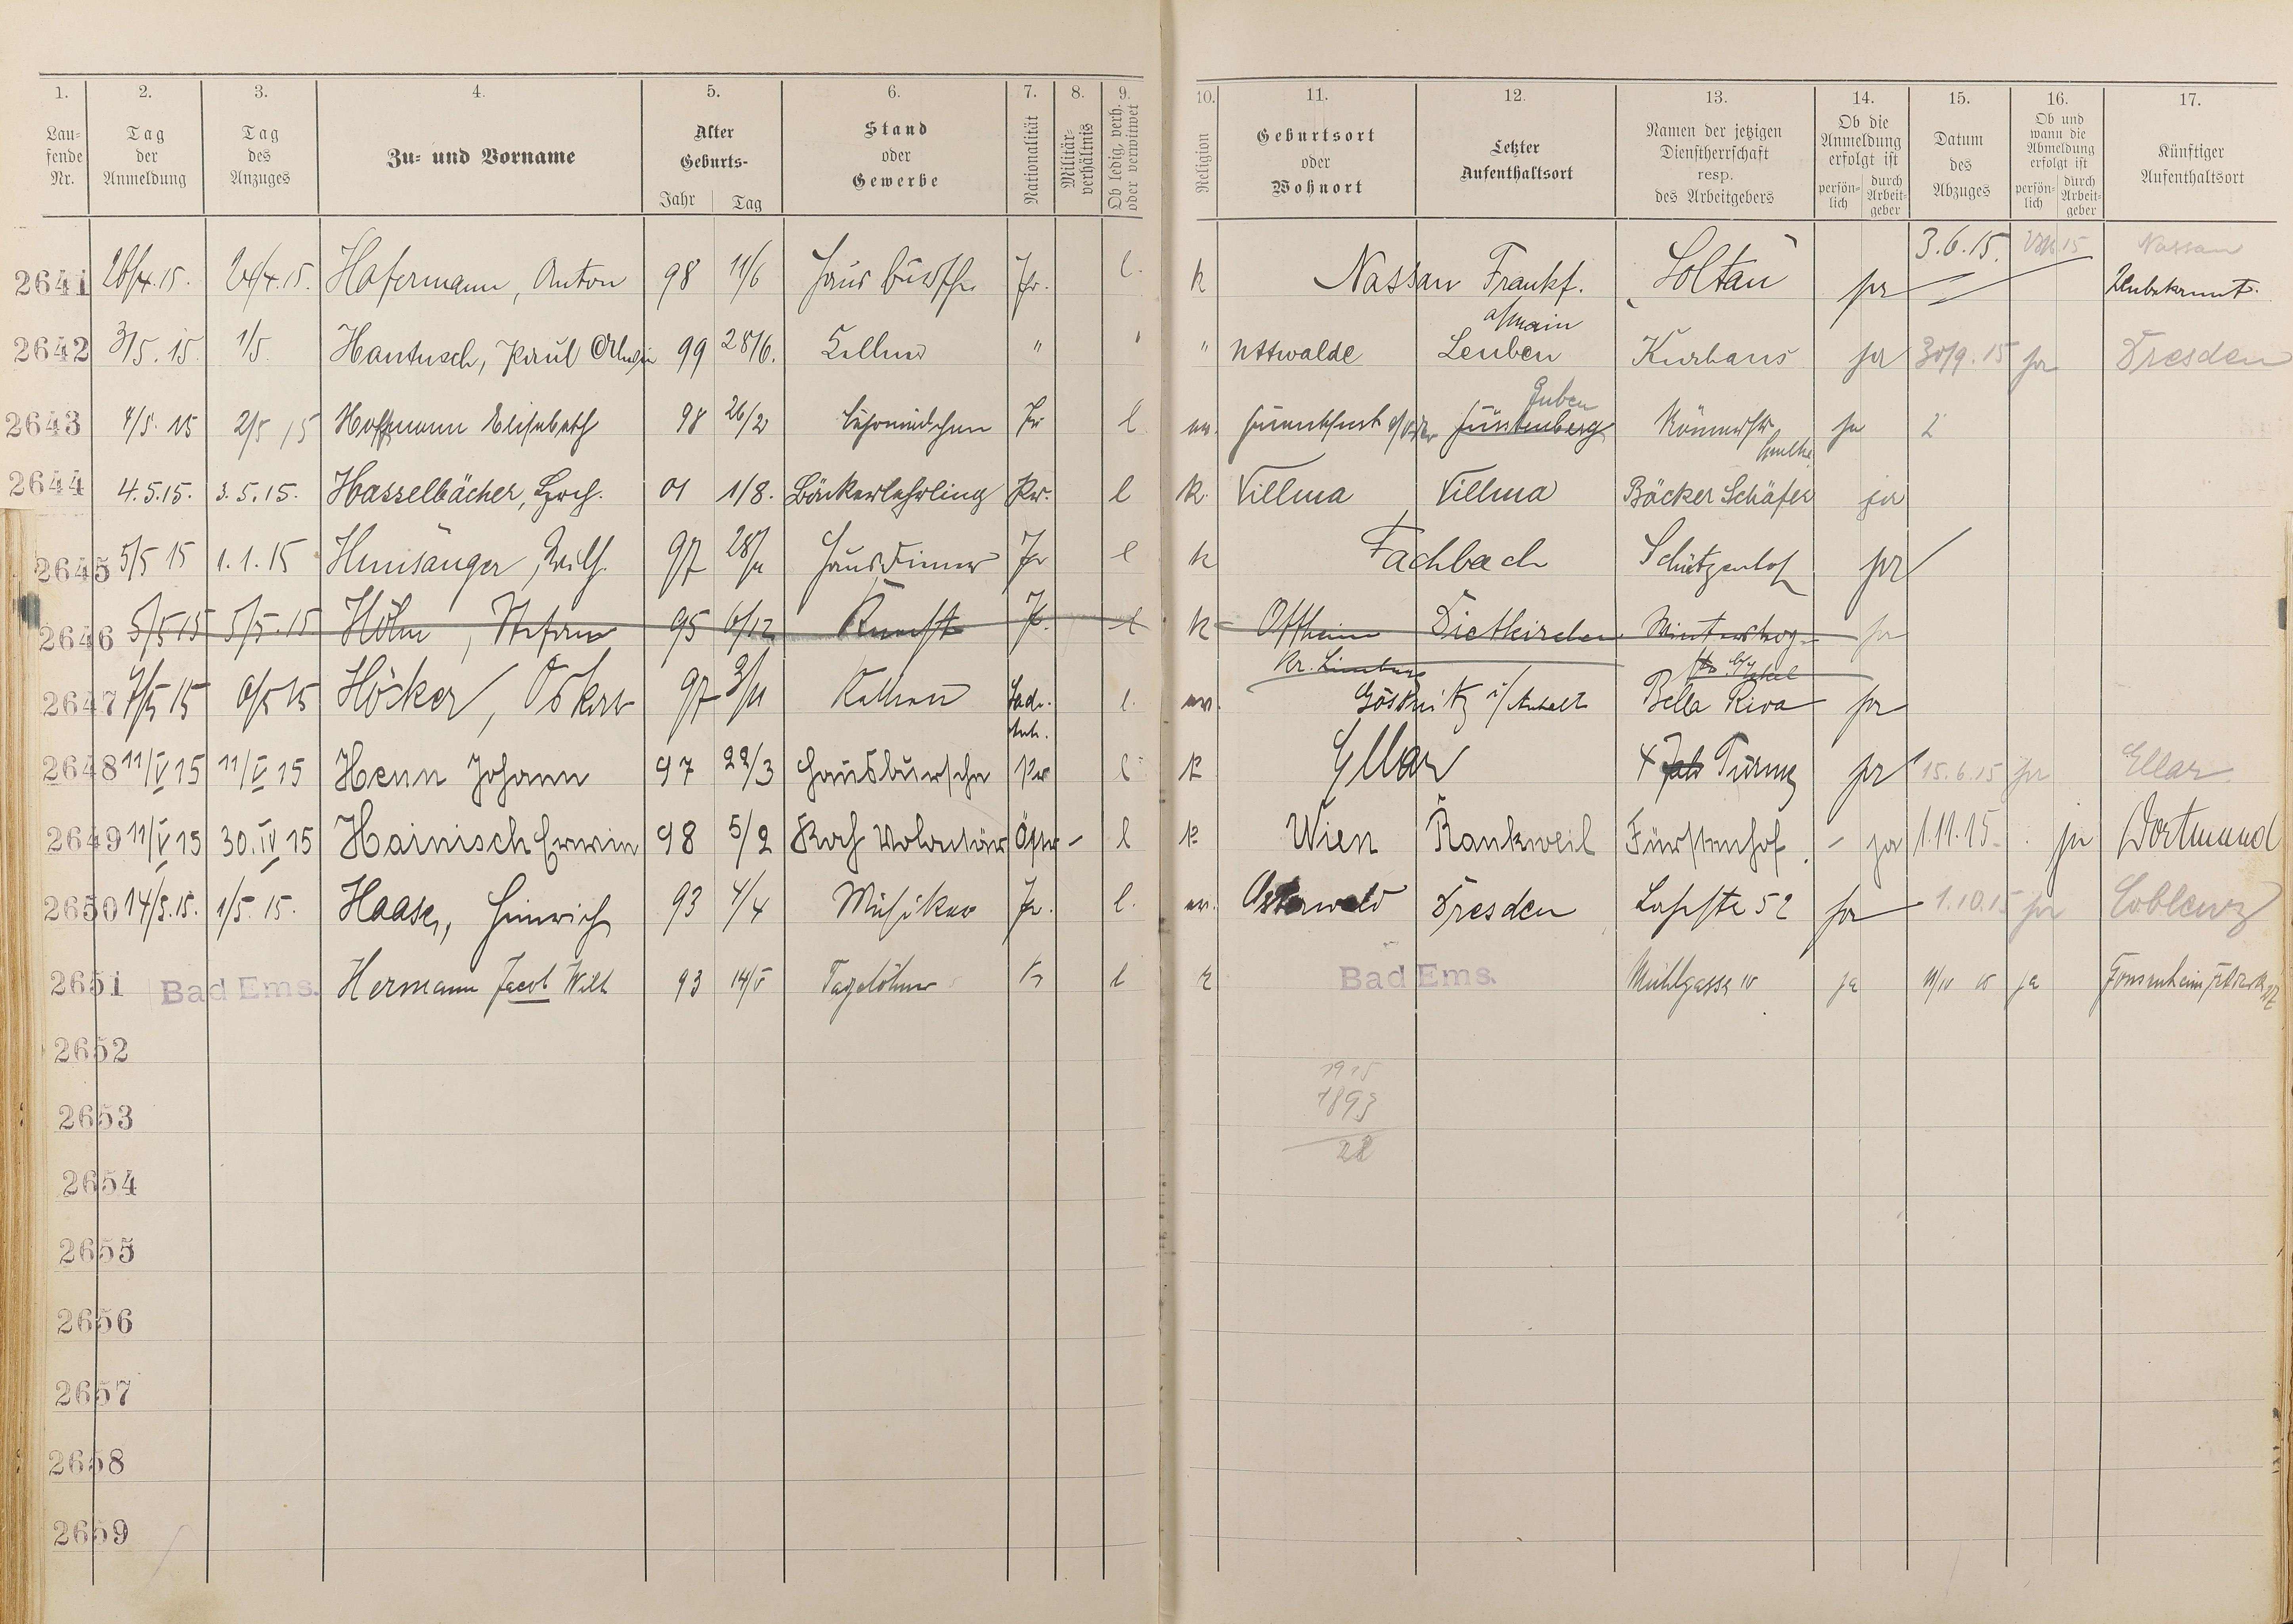 1. 2. 3. 4. 5. 6. 7. 8. 9. 10. 11. 12. 13. 14. 15. 16. 17.
Lau-fende Nr. Tag der Anmeldung Tag des Anzuges Zu- und Vorname Alter Geburts- Jahr Tag Stand oder Gewerbe Nationalität Militär-verhältnis Ob ledig, verh. oder verwitwet Religion Geburtsort oder Wohnort Letzter Aufenthaltsort Namen der jetzigen Dienstherrschaft resp. des Arbeitgebers Ob die Anmeldung erfolgt ist persön-lich durch Arbeit-geber Datum des Abzuges Ob und wann die Abmeldung erfolgt ist persön-lich durch Arbeit-geber Künftiger Aufenthaltsort
2641 28/4.15. 24/4.15. Hafermann, Anton 98 11/6 Hausbursche Pr. l. k Nassau Frankf. a/Main Soltau ja 3.6.15. Nassau Unbekannt.
2642 3/5.15. 1/5. Hantusch, Paul 99 28/6. Kellner " " " Leuben Kurhaus ja 30/9.15 ja Dresden
2643 4/5. 15 2/5 15 Hoffmann Elisabeth 98 26/2 Pr l ev. Fürstenberg Guben Römerstr. ja
2644 4.5.15. 3.5.15. Hasselbächer, 01 1/8. Bäckerlehrling Pr. l k. Villmar Villmar Bäcker Schäfer ja
2645 5/5 15 1.1.15 Hunsänger, Wilh. 97 Hausdiener Pr l k Fachbach Schützenhof ja
2646 5/5 15 5/5.15 Höhn, Stefan 95 6/12 Pr. l k Offheim Kr. Limburg Dietkirchen ja
2647 7/5 15 6/5 15 Höcker, Oskar 97 Kellner l. ev. i/Anhalt Bella Riva ja
2648 11/V 15 11/V 15 Henn Johann 97 22/3 Hausbursche Pr l k Ellar 4 Türme ja 15.6.15 ja Ellar
2649 11/V 15 30.IV 15 Hainisch Erwin 98 5/2 Koch Volontär Östr - l k Wien Rankweil Fürstenhof. - ja 1.11.15. ja Dortmund
2650 14/5.15. 1/5.15. Haase, Heinrich 93 4/4 Musiker Pr. l. ev. Osterwald Dresden 52 ja 1.10.15 ja Coblenz
2651 Bad Ems. Hermann Jacob Wilh 93 14/V Tagelöhner Pr l k Bad Ems. Mühlgasse 10 ja ja
2652
1915
1893
22
2653
2654
2655
2656
2657
2658
2659